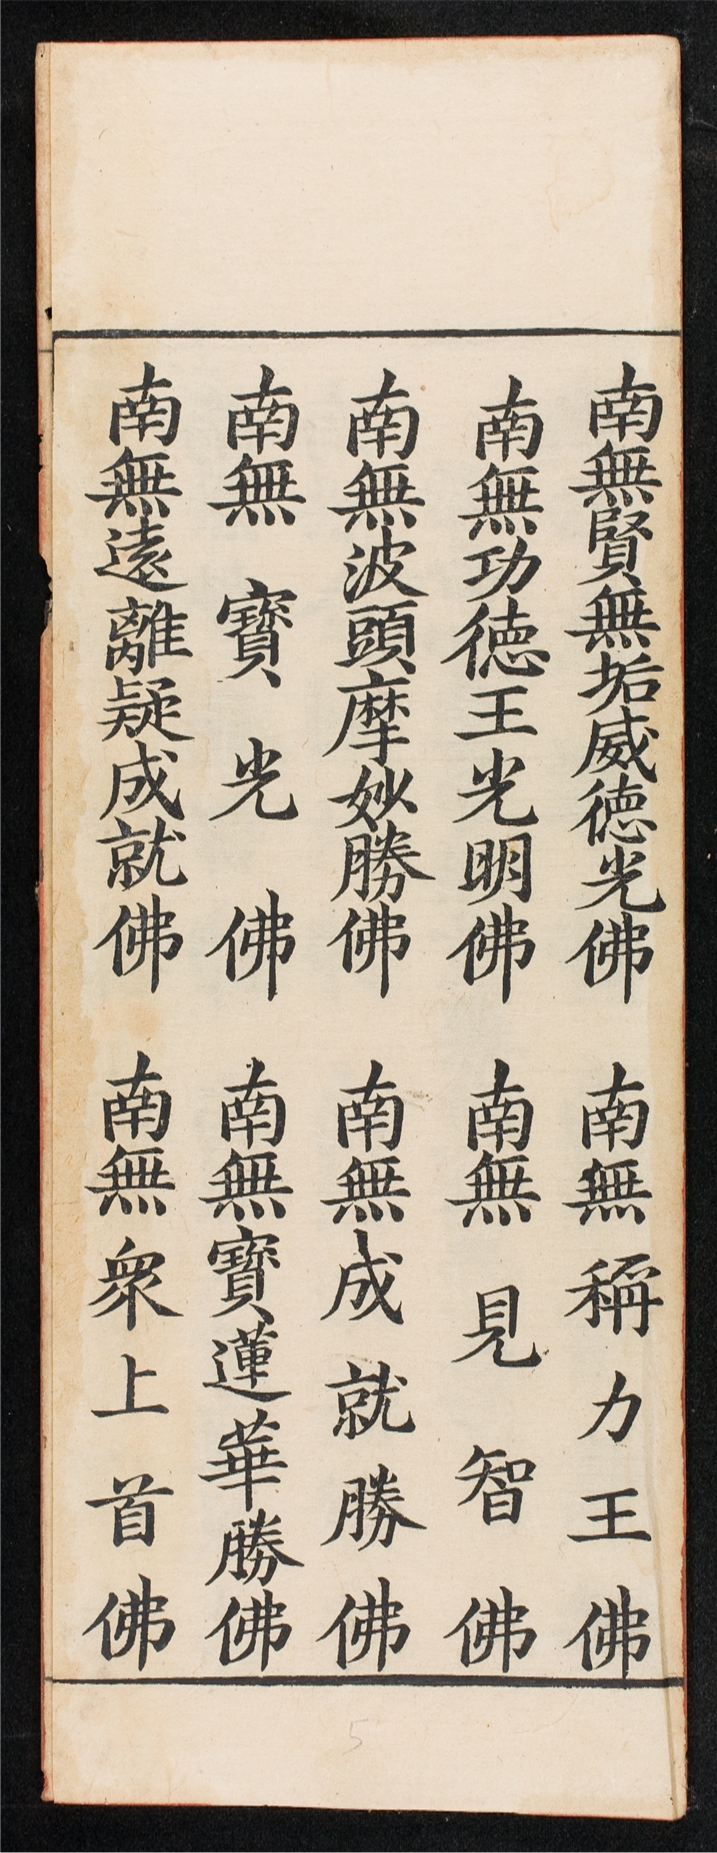 南無賢無垢威德光佛　南無稱力王佛
南無功德王光明佛　南無見智佛
南無波頭摩妙勝佛　南無成就勝佛
南無寶光佛　南無寶蓮華勝佛
南無遠離疑成就佛　南無衆上首佛
5